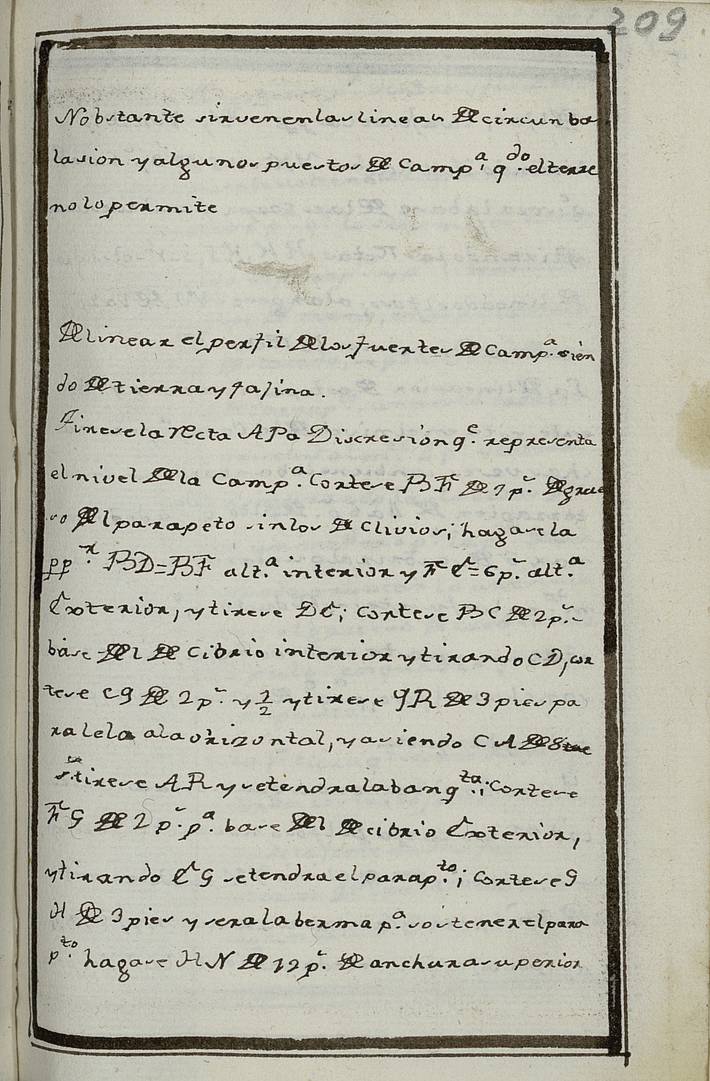 209
Nobstante sirven en las lineas de circunba
lasion y algunos puestos de Camp.ª q.do el terre
no lo permite
Delinear el perfil de los fuertes de Camp.ª sien
do de tierra y fajina.
Tirese la recta A P a Discresion q.e representa
el nivel de la Camp.ª Cortese B F de 7 p.s de grue
so del parapeto sin los de Clivios; hagase la
pp.r BD=BF alt.ª interior y F E=6 p.s alt.ª
Exterior, y tirese DE; Cortese B C de 2 p.s
base del de Cibrio interior y tirando C D, cor
tese C 9 de 2 p.s y 1/2 y tirese 9 R de 3 pies pa
ralela a la orizontal, y asiendo C A de
tirese A R y se tendra la banq.ta; Cortese
F G de 2 p.s p.ª base del de cibrio Exterior,
y tirando E G se tendra el parap.to; Cortese G
H de 3 pies y sera la berma p.ª sostener el para
p.to hagase H N de 12 p.s de anchura superior